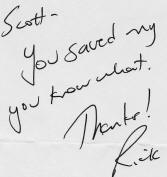 Scott-
You saved my
you know what.
Thanks!
Rick